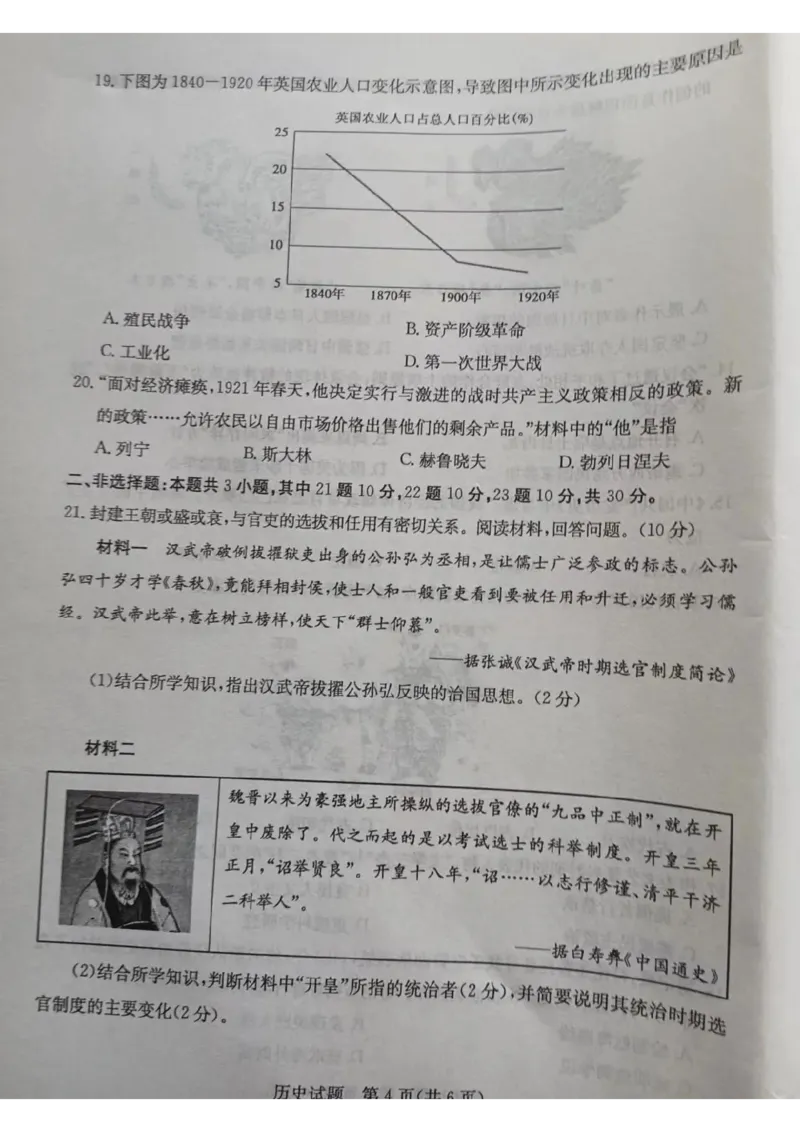 19. 下图为1840—1920年英国农业人口变化示意图,导致图中所示变化出现的主要原因是
英国农业人口占总人口百分比(%)
25
20
15
10
5
1840年 1870年 1900年 1920年
A. 殖民战争 B. 资产阶级革命
C. 工业化 D. 第一次世界大战
20. “面对经济瘫痪,1921年春天,他决定实行与激进的战时共产主义政策相反的政策。新
的政策……允许农民以自由市场价格出售他们的剩余产品。”材料中的“他”是指
A. 列宁 B. 斯大林 C. 赫鲁晓夫 D. 勃列日涅夫
二、非选择题:本题共3小题,其中21题10分,22题10分,23题10分,共30分。
21. 封建王朝或盛或衰,与官吏的选拔和任用有密切关系。阅读材料,回答问题。(10分)
材料一 汉武帝破例拔擢狱吏出身的公孙弘为丞相,是让儒士广泛参政的标志。公孙
弘四十岁才学《春秋》,竟能拜相封侯,使士人和一般官吏看到要被任用和升迁,必须学习儒
经。汉武帝此举,意在树立榜样,使天下“群士仰慕”。
——据张诚《汉武帝时期选官制度简论》
(1)结合所学知识,指出汉武帝拔擢公孙弘反映的治国思想。(2分)
材料二
魏晋以来为豪强地主所操纵的选拔官僚的“九品中正制”,就在开
皇中废除了。代之而起的是以考试选士的科举制度。开皇三年
正月,“诏举贤良”。开皇十八年,“诏……以志行修谨、清平干济
二科举人”。
——据白寿彝《中国通史》
(2)结合所学知识,判断材料中“开皇”所指的统治者(2分),并简要说明其统治时期选
官制度的主要变化(2分)。
历史试题 第4页(共6页)